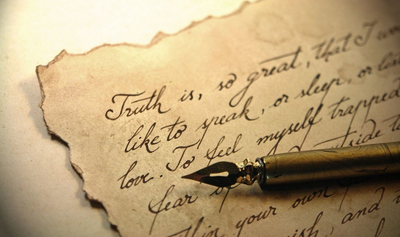 Truth is, so great, that I
like to speak, or sleep, or
love. To feel myself trapped
fear
your own
and